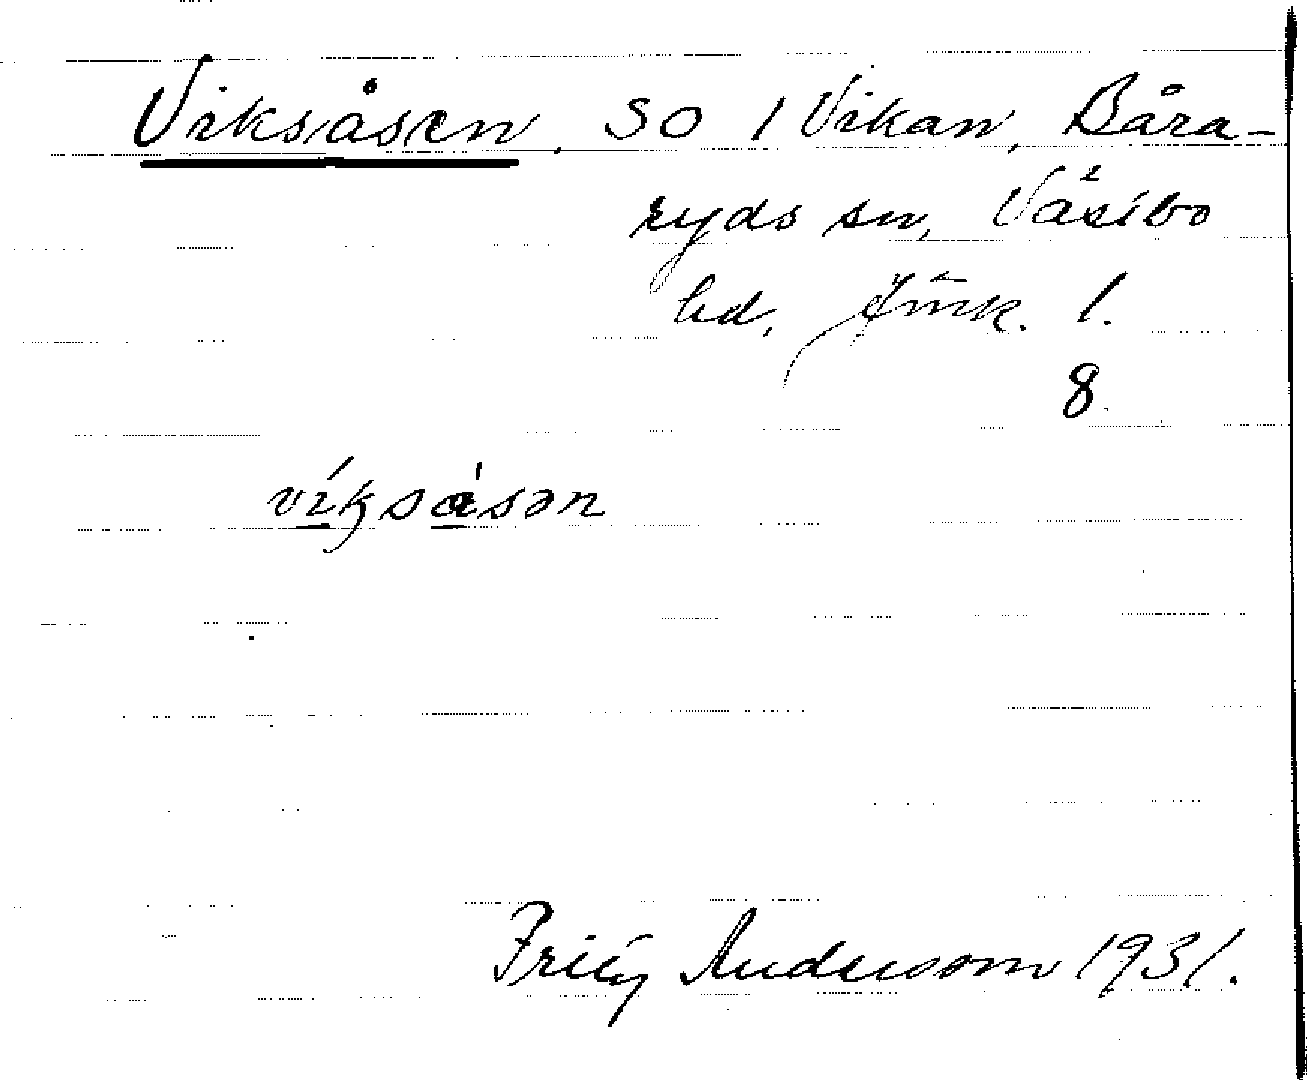 Viksåsen, SO i Vikan, Båra-
ryds sn, Västbo
hd, Jönk. l.
8.
viksåsən
Fritz Anderson 1931.